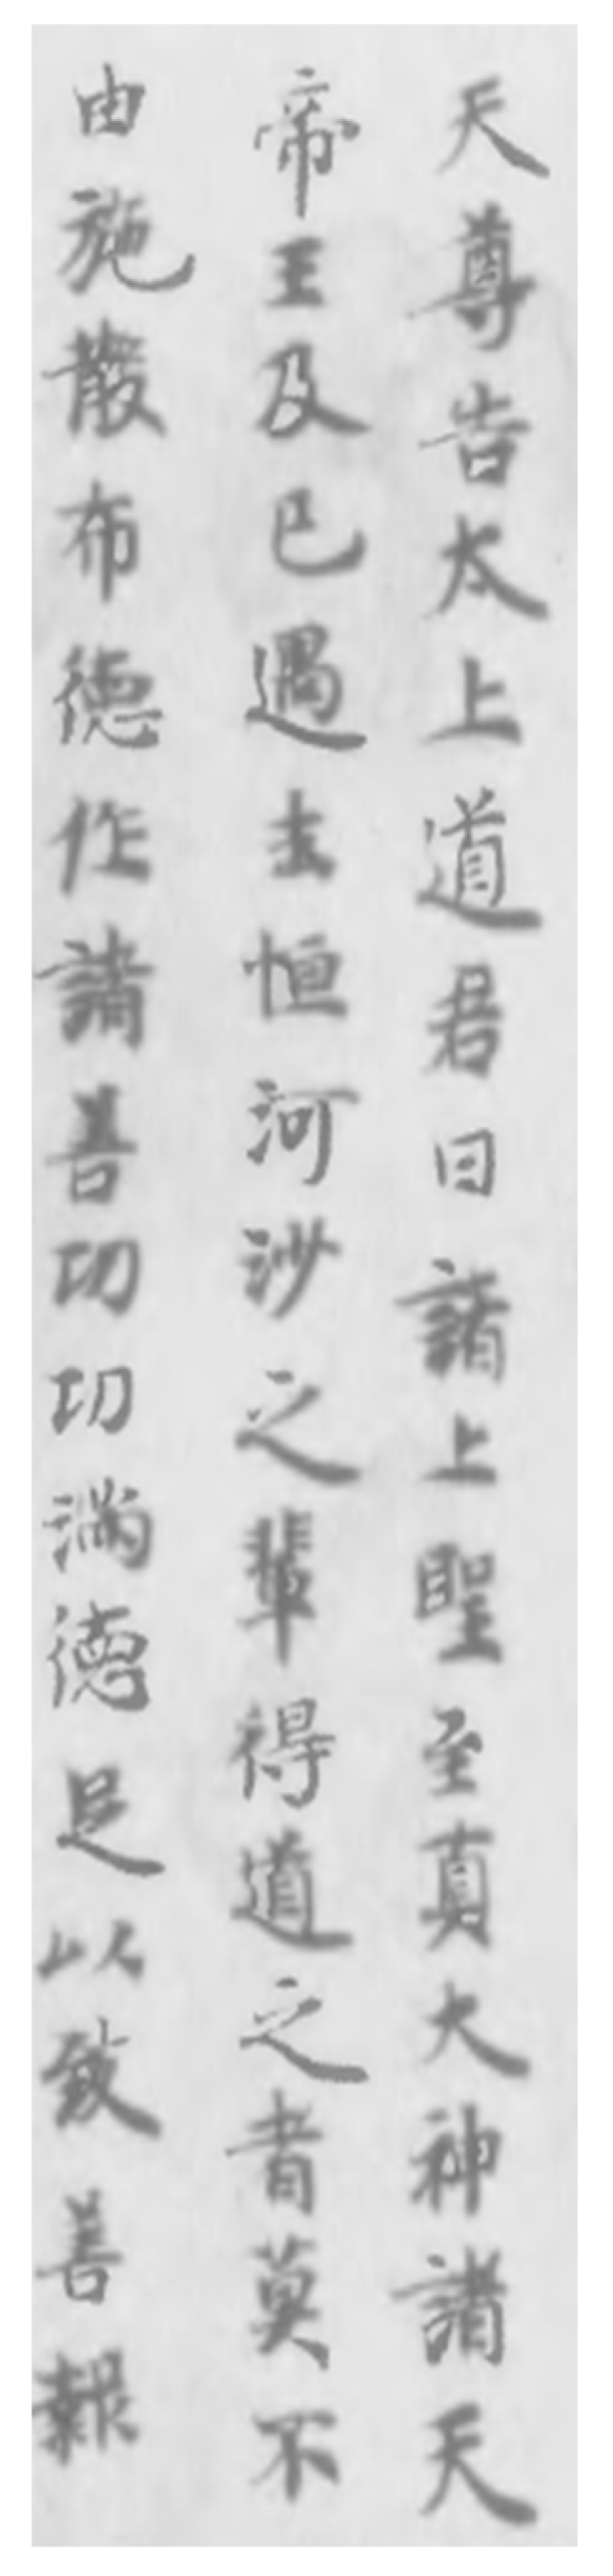 天尊告太上道君曰諸上聖至真大神諸天
帝王及已過去恒河沙之輩得道之者莫不
由施散布德作諸善功功滿德足以致善報